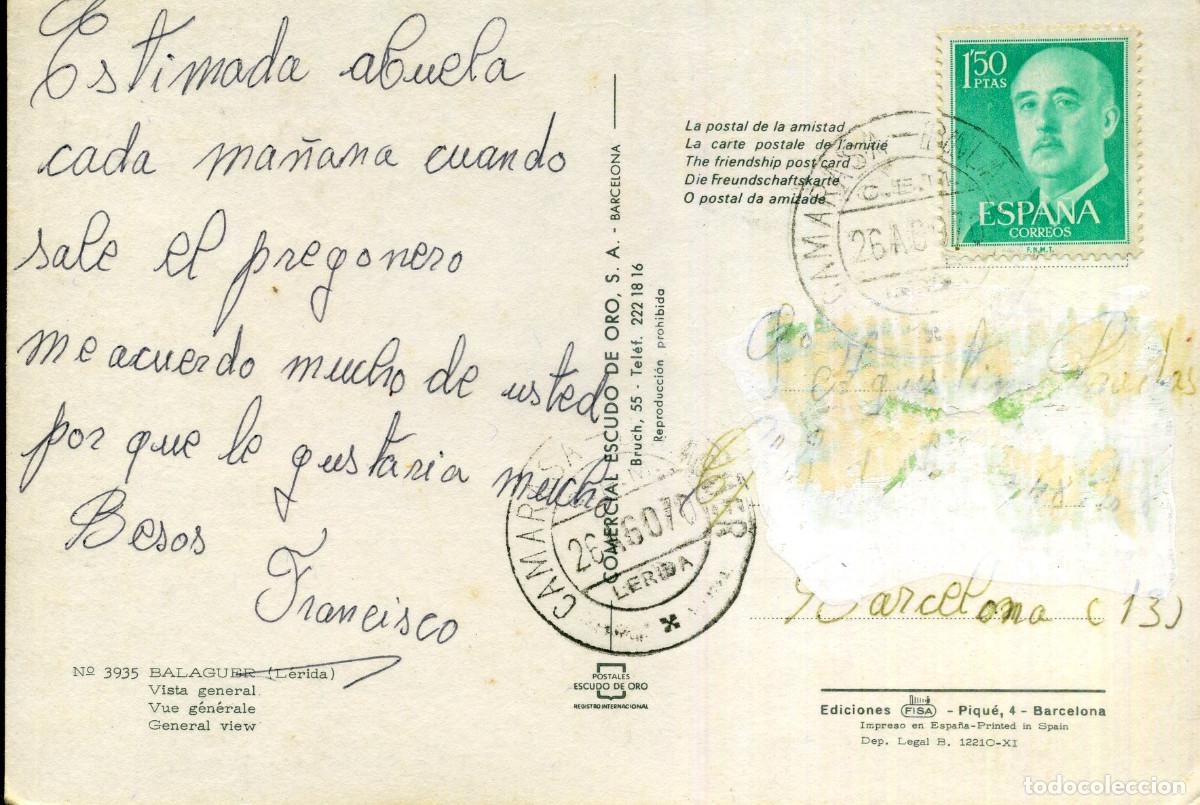 Estimada abuela
cada mañana cuando
sale el pregonero
me acuerdo mucho de usted
por que le gustaria mucho
Besos
Francisco
Nº 3935 BALAGUER (Lérida)
Vista general
Vue générale
General view
COMERCIAL ESCUDO DE ORO, S. A. - BARCELONA
Bruch, 55 - Teléf. 222 18 16
Reproducción prohibida
POSTALES
ESCUDO DE ORO
REGISTRO INTERNACIONAL
La postal de la amistad
La carte postale de l'amitié
The friendship post card
Die Freundschaftskarte
O postal da amizade
1'50
PTAS
ESPAÑA
CORREOS
F.N.M.T.
CAMARASA
26 AGO 70
LERIDA
Barcelona (13)
Ediciones FISA - Piqué, 4 - Barcelona
Impreso en España-Printed in Spain
Dep. Legal B. 12210-XI
todocoleccion